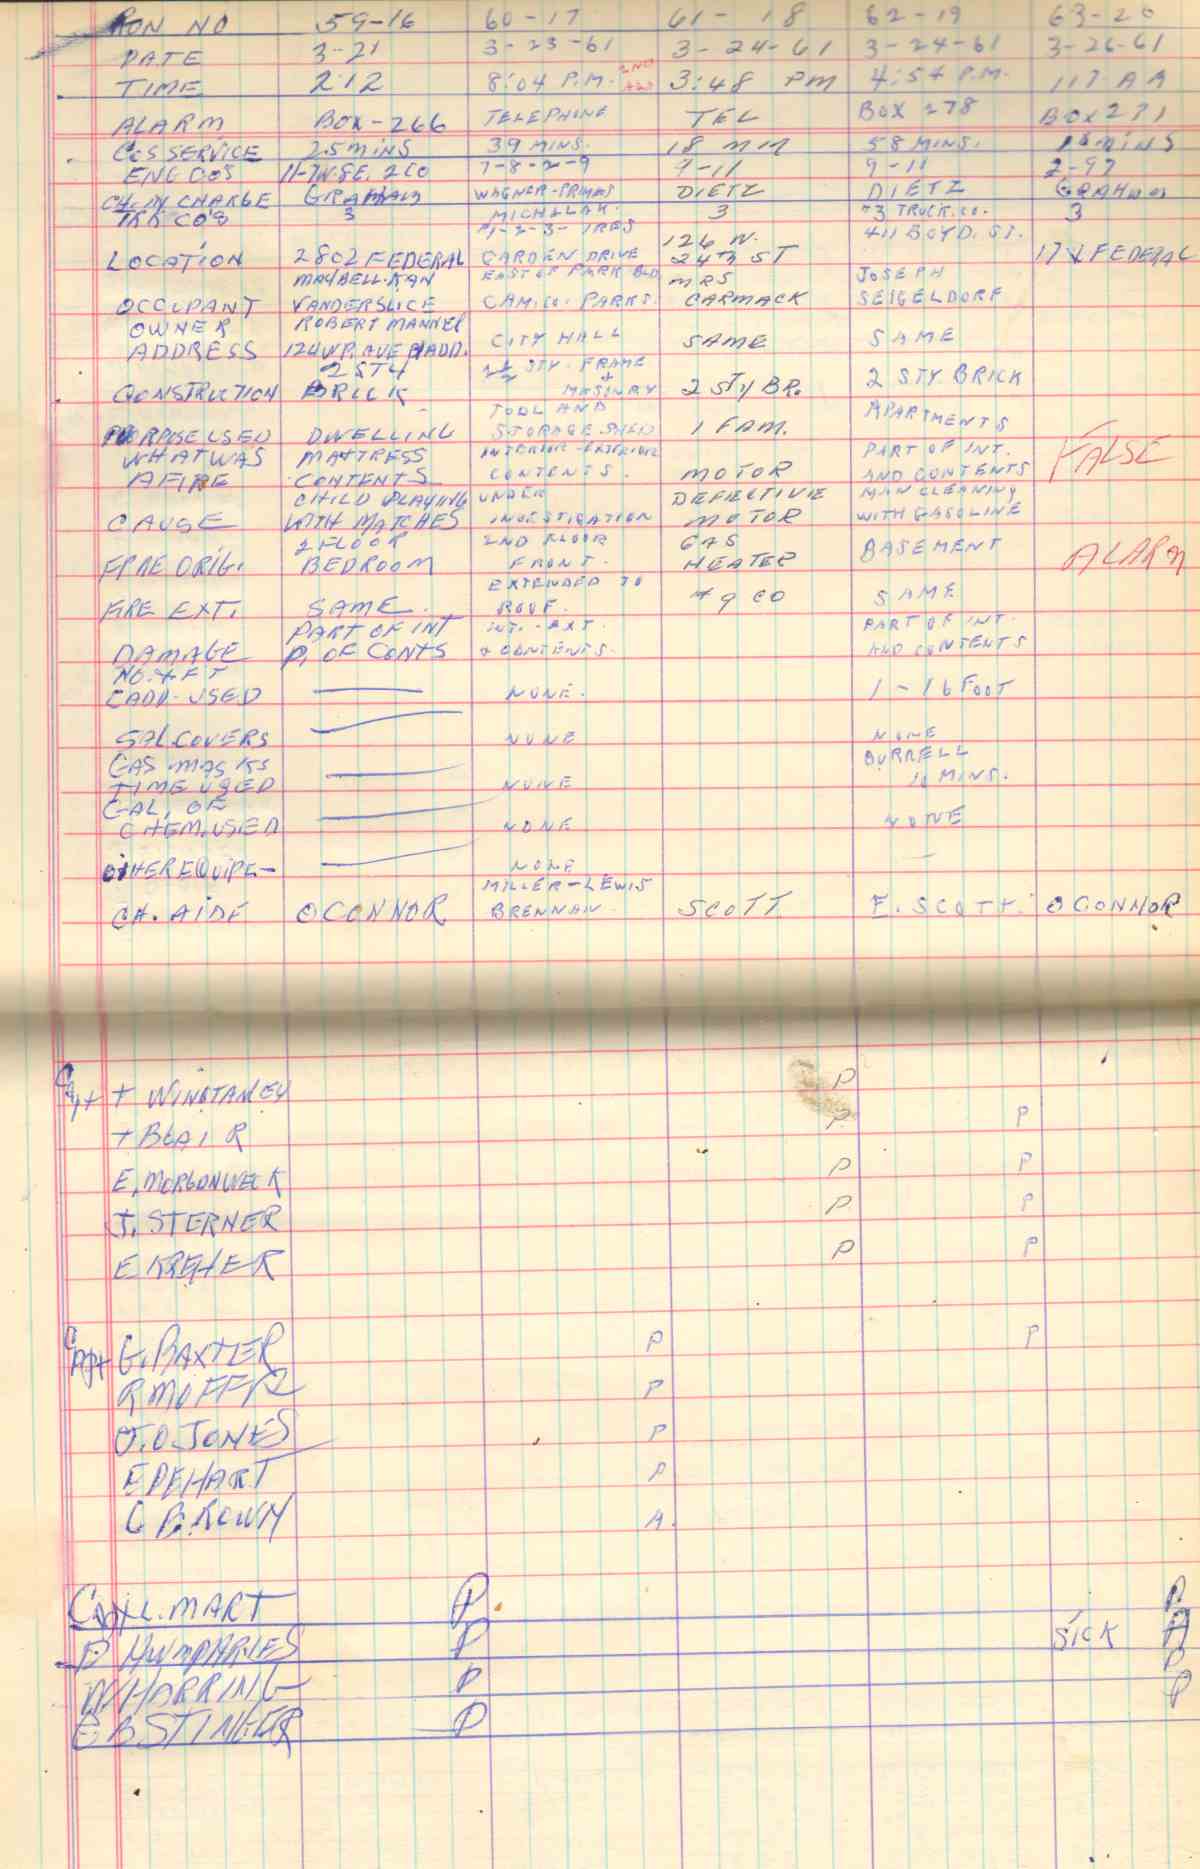 RUN NO 59-16 60-17 61-18 62-19 63-20
DATE 3-21 3-23-61 3-24-61 3-24-61 3-26-61
TIME 2:12 8:04 P.M. 2ND 3:48 PM 4:54 P.M.
ALARM BOX-266 TELEPHONE TEL BOX 278 BOX 271
COS SERVICE 25 MINS 39 MINS. 18 MIN 58 MINS. MINS
ENG COS 7-8-2-9 9-11 9-11
CH. IN CHARGE GRAHAM WAGNER-PRIMAS DIETZ DIETZ GRAHAM
TRK CO'S 3 MICHALAK. 3 #3 TRUCK. CO. 3
#1-2-3- TRES 126 N. 411 BOYD. ST.
LOCATION 2802 FEDERAL GARDEN DRIVE 24TH ST FEDERAL
MAYBELL-KAN EAST OF PARK BLD MRS JOSEPH
OCCUPANT VANDERSLICE CAM. CO. PARKS. CARMACK SEIGELDORF
OWNER ROBERT MANNEL
ADDRESS CITY HALL SAME SAME
2 STY STY. FRAME
CONSTRUCTION BRICK + MASINRY 2 STY BR. 2 STY. BRICK
TOOL AND APARTMENTS
PURPOSE USED DWELLING STORAGE SHED 1 FAM.
WHAT WAS MATTRESS INTERIOR-EXTERIOR PART OF INT.
AFIRE CONTENTS CONTENTS. MOTOR AND CONTENTS FALSE
CHILD PLAYING UNDER DEFECTIVIE MAN CLEANING
CAUSE WITH MATCHES INVESTIGATION MOTOR WITH GASOLINE
2 FLOOR 2ND FLOOR GAS
FIRE ORIG. BEDROOM FRONT. HEATER BASEMENT ALARM
EXTENDED TO
FIRE EXT. SAME. ROOF. # 9 CO SAME
PART OF INT INT.-EXT. PART OF INT.
DAMAGE P. OF CONTS + CONTENTS. AND CONTENTS
NO. + FT
LADD-USED NONE. 1-16 FOOT
SAL COVERS NONE NONE
GAS MASKS BURRELL
TIME USED NONE 10 MINS.
GAL. OF
CHEM. USED NONE NONE
OTHER EQUIPE- NONE
MILLER-LEWIS
CH. AIDE O CONNOR BRENNAN SCOTT E. SCOTT. O CONNOR
Capt + WINSTANLEY P
+ BLAIR P P
E. MORGONWECK P P
J. STERNER P P
E KREHER P P
Capt G. BAXTER P P
R MOFFA P
J. O. JONES P
E DEHART P
C BROWN A.
Capt L. MART P P
D HUMPHRIES P SICK A
W HARRING P P
E B STINGER P P